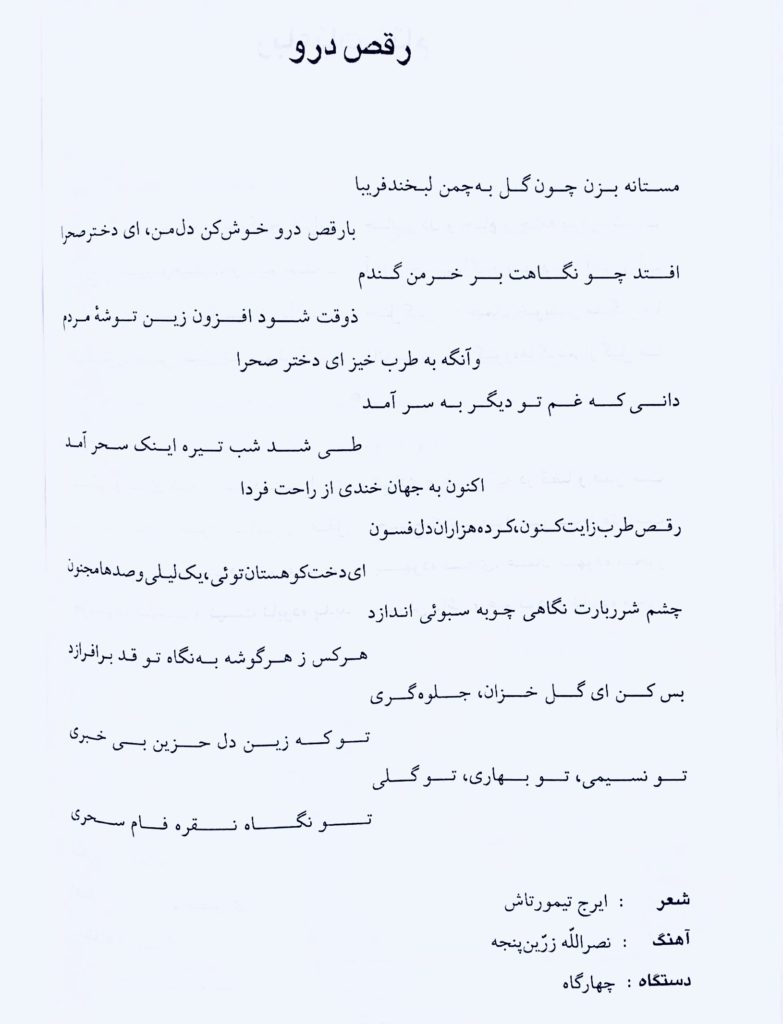 رقص درو
مستانه بزن چون گل به‌چمن لبخندفریبا
بارقص درو خوش‌کن دل‌من، ای دخترصحرا
افتد چو نگاهت بر خرمن گندم
ذوقت شود افزون زین توشهٔ مردم
وآنگه به طرب خیز ای دختر صحرا
دانی که غم تو دیگر به سر آمد
طی شد شب تیره اینک سحر آمد
اکنون به جهان خندی از راحت فردا
رقص طرب‌زایت کنون، کرده هزاران دل فسون
ای دخت کوهستان توئی، یک لیلی و صدها مجنون
چشم شرربارت نگاهی چوبه سبوئی اندازد
هرکس ز هرگوشه به‌نگاه تو قد برافرازد
بس کن ای گل خزان، جلوه‌گری
تو که زین دل حزین بی خبری
تو نسیمی، تو بهاری، تو گلی
تو نگاه نقره فام سحری
شعر : ایرج تیمورتاش
آهنگ : نصراللّه زرّین‌پنجه
دستگاه : چهارگاه